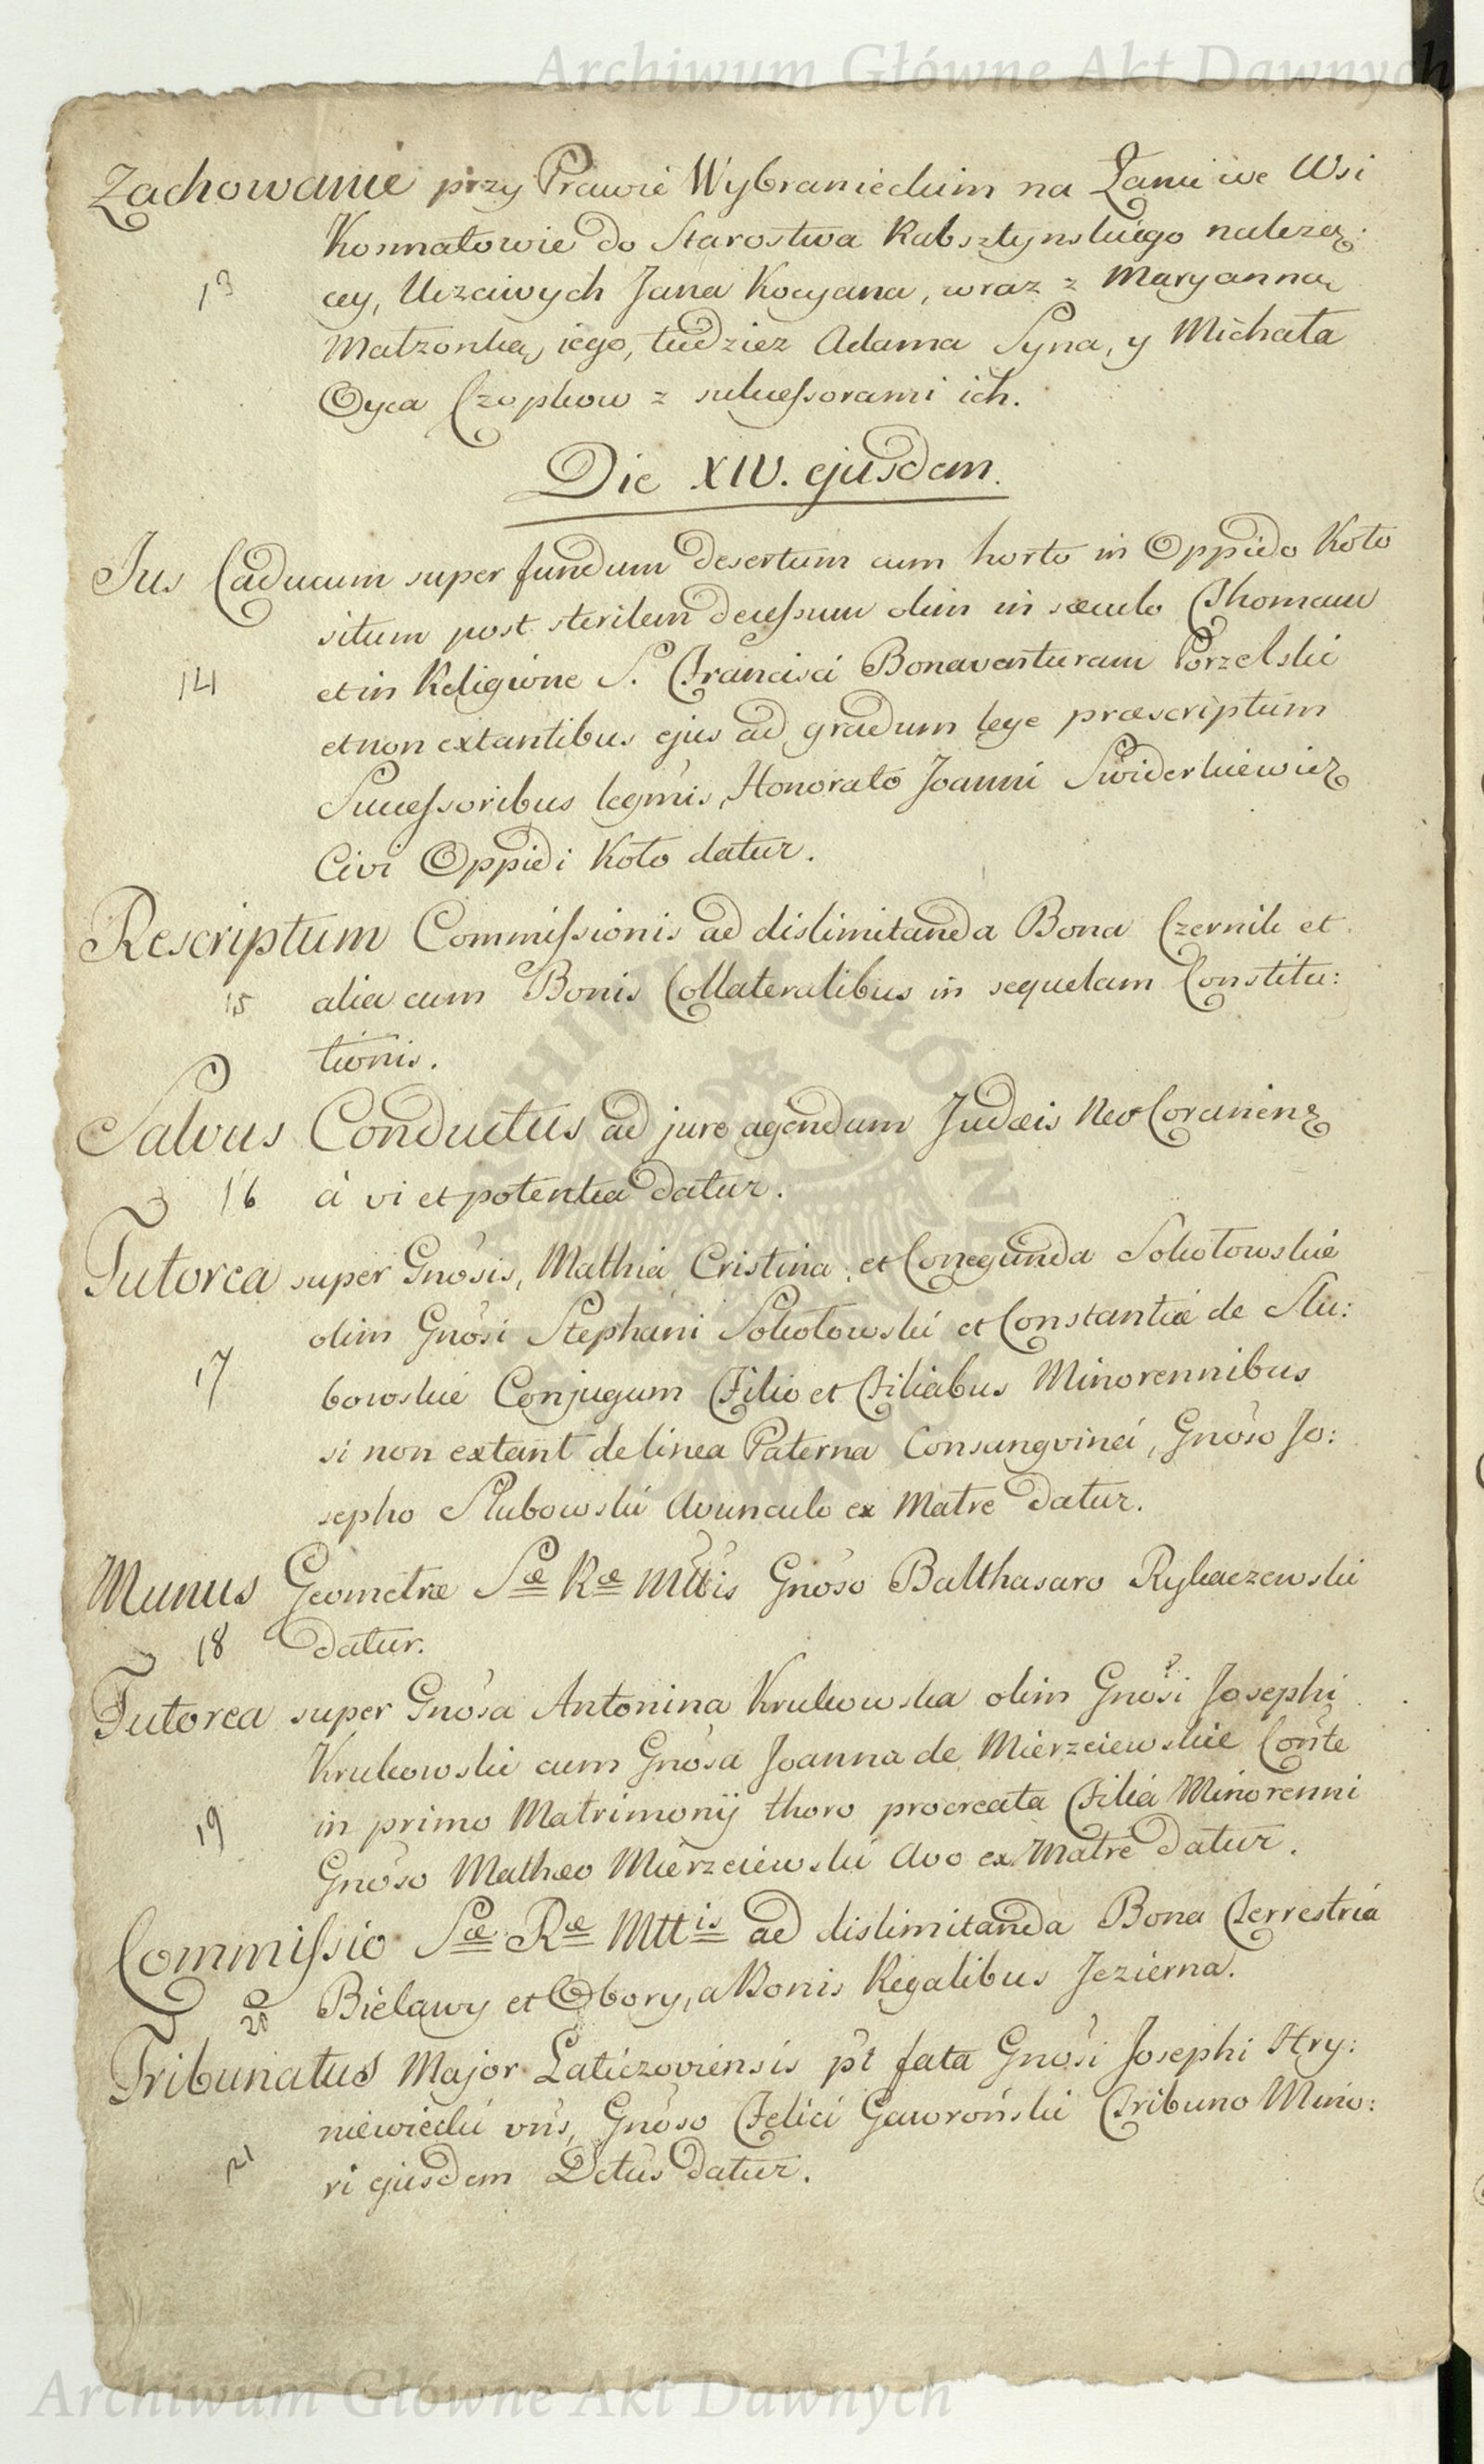 Archiwum Główne Akt Dawnych
Zachowanie przy Prawie Wybranieckim na Łanie we Wsi
Kosmałowie do Starostwa Rabsztynskiego należą:
13
cey, Uczciwych Jana Kocyana, wraz z Maryanną
Małżonką iego, tudziez Adama Syna, y Michała
Oyca Czopkow z sukcessorami ich.
Die XIV. ejusdem.
Jus Caducum super fundum desertum cum horto in Oppido Koło
situm post sterilem decessum olim in sæculo Thomam
14
et in Religione S. Francisci Bonaventuram Porzelski
et non extantibus ejus ad gradum lege præscriptum
Successoribus legmis, Honorato Joanni Swiderkiewicz
Civi Oppidi Koło datur.
Rescriptum Commissionis ad dislimitanda Bona Czernik et
15 alia cum Bonis Collateralibus in sequelam Constitu:
tionis.
Salvus Conductus ad jure agendum Judæis NeoCoraninen
16 à vi et potentia datur.
Tutorea super Gnosis, Mathia Cristina, et Conegunda Sokołowskie
olim Gnosi Stephani Sokołowski et Constantiæ de Słu:
17
bowskie Conjugum Filio et Filiabus Minorennibus
si non extant de linea Paterna Consangvinei, Gnoso Jo:
sepho Słubowski Avunculo ex Matre datur.
Munus Geometræ Sæ Ræ Mttis Gnoso Balthasaro Rykaczewski
18 datur.
Tutorea super Gnosa Antonina Krukowska olim Gnosi Josephi
Krukowski cum Gnosa Joanna de Mierzeiewskie Conte
19
in primo Matrimonij thoro procreata Filia Minorenni
Gnoso Mathæo Mierzeiewski Avo ex Matre datur.
Commissio Sæ Ræ Mttis ad dislimitanda Bona Terrestria
20 Bielawy et Obory, a Bonis Regalibus Jezierna.
Tribunatus Major Laticzoviensis pt fata Gnosi Josephi Hry:
niewiecki vns, Gnoso Felici Gawroński Tribuno Mino:
21
ri ejusdem Dctus datur.
Archiwum Główne Akt Dawnych